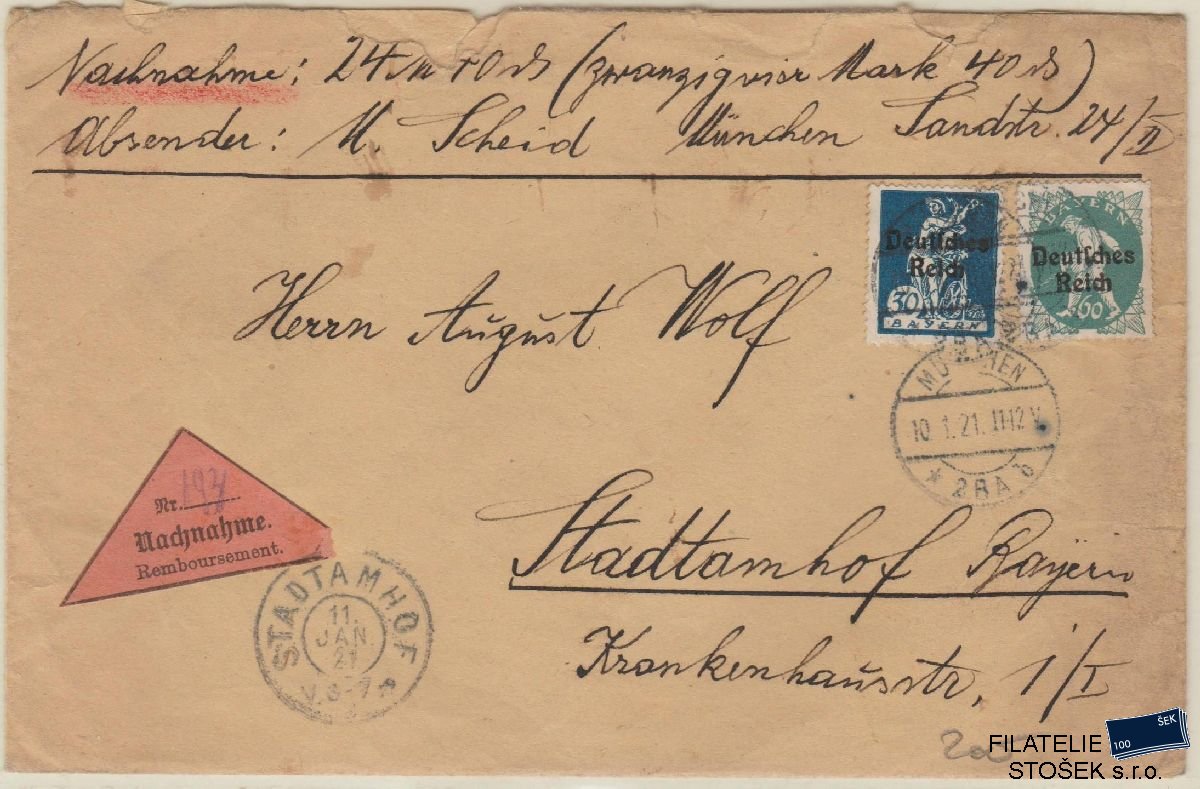 Nachnahme: 24 M 40 ₰ (zwanzigvier Mark 40 ₰)
Absender: M. Scheid München Sandstr. 24/II
Deutsches Reich
30
BAYERN
BAYERN
Deutsches Reich
60
MÜNCHEN
10.1.21. 11-12 V.
* 2BA b
Herrn August Wolf
Stadtamhof Bayern
Krankenhausstr. 1/I
Nr.
Nachnahme.
Remboursement.
STADTAMHOF
11. JAN. 21
V. 6-7
FILATELIE
STOŠEK s.r.o.
100 ŠEK